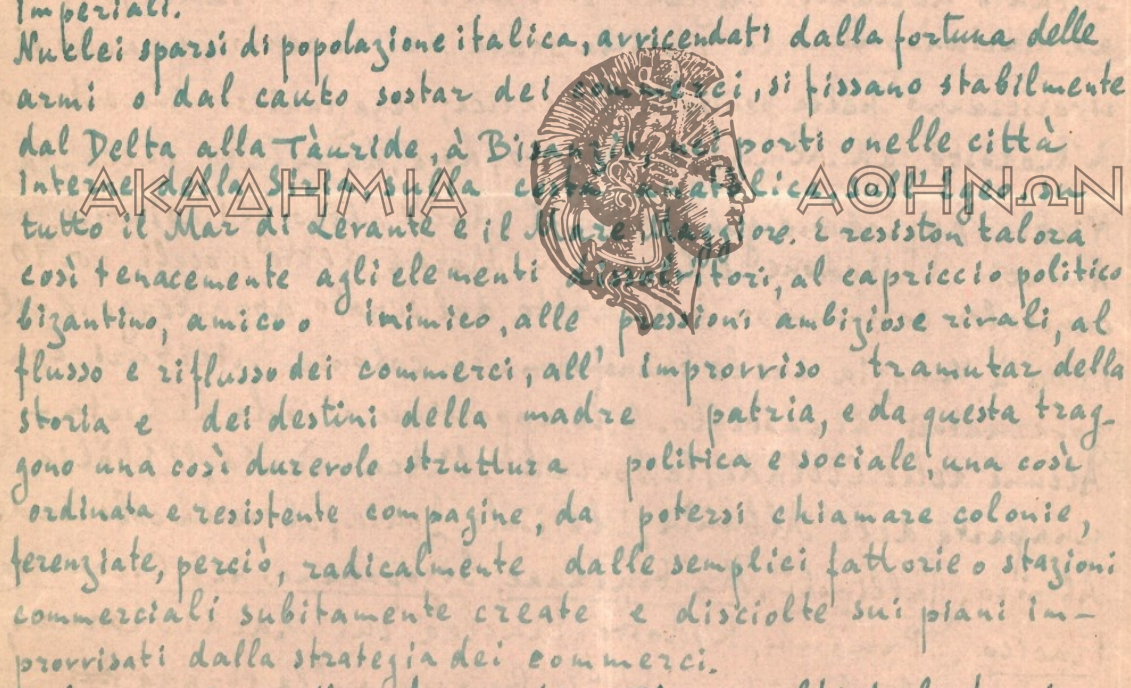 imperiali.
Nuclei sparsi di popolazione italica, avvicendati dalla fortuna delle
armi o dal cauto sostar dei commerci, si fissano stabilmente
dal Delta alla Tàuride, à Bisanzio, nei porti o nelle città
interne della Siria sulla costa anatolica, sull'Egeo in
tutto il Mar di Levante e il Mare Maggiore. E resiston talora
ΑΚΑΔΗΜΙΑ ΑΘΗΝΩΝ
così tenacemente agli elementi dissolvitori, al capriccio politico
bizantino, amico o inimico, alle pressioni ambiziose rivali, al
flusso e riflusso dei commerci, all' improvviso tramutar della
storia e dei destini della madre patria, e da questa trag-
gono una così durevole struttura politica e sociale, una così
ordinata e resistente compagine, da potersi chiamare colonie,
ferenziate, perciò, radicalmente dalle semplici fattorie o stazioni
commerciali subitamente create e disciolte sui piani im-
provvisati dalla strategia dei commerci.